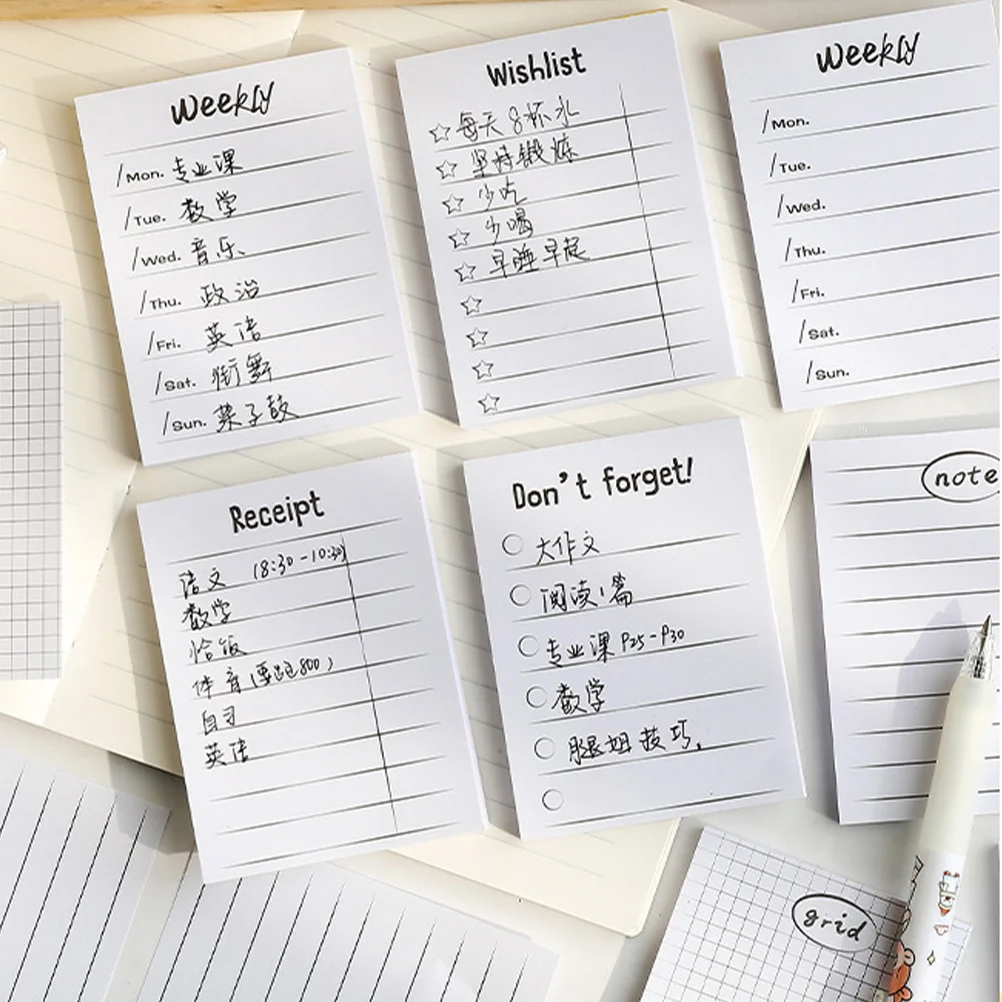 Weekly
/Mon. 专业课
/Tue. 数学
/Wed. 音乐
/Thu. 政治
/Fri. 英语
/Sat. 街舞
/Sun. 架子鼓
Wishlist
每天8杯水
坚持锻炼
少吃
少喝
早睡早起
Weekly
/Mon.
/Tue.
/Wed.
/Thu.
/Fri.
/Sat.
/Sun.
Receipt
语文 (8:30-10:30)
数学
恰饭
体育(要跑800)
自习
英语
Don't forget!
大作文
阅读1篇
专业课 P25-P30
数学
腿姐技巧.
note
grid